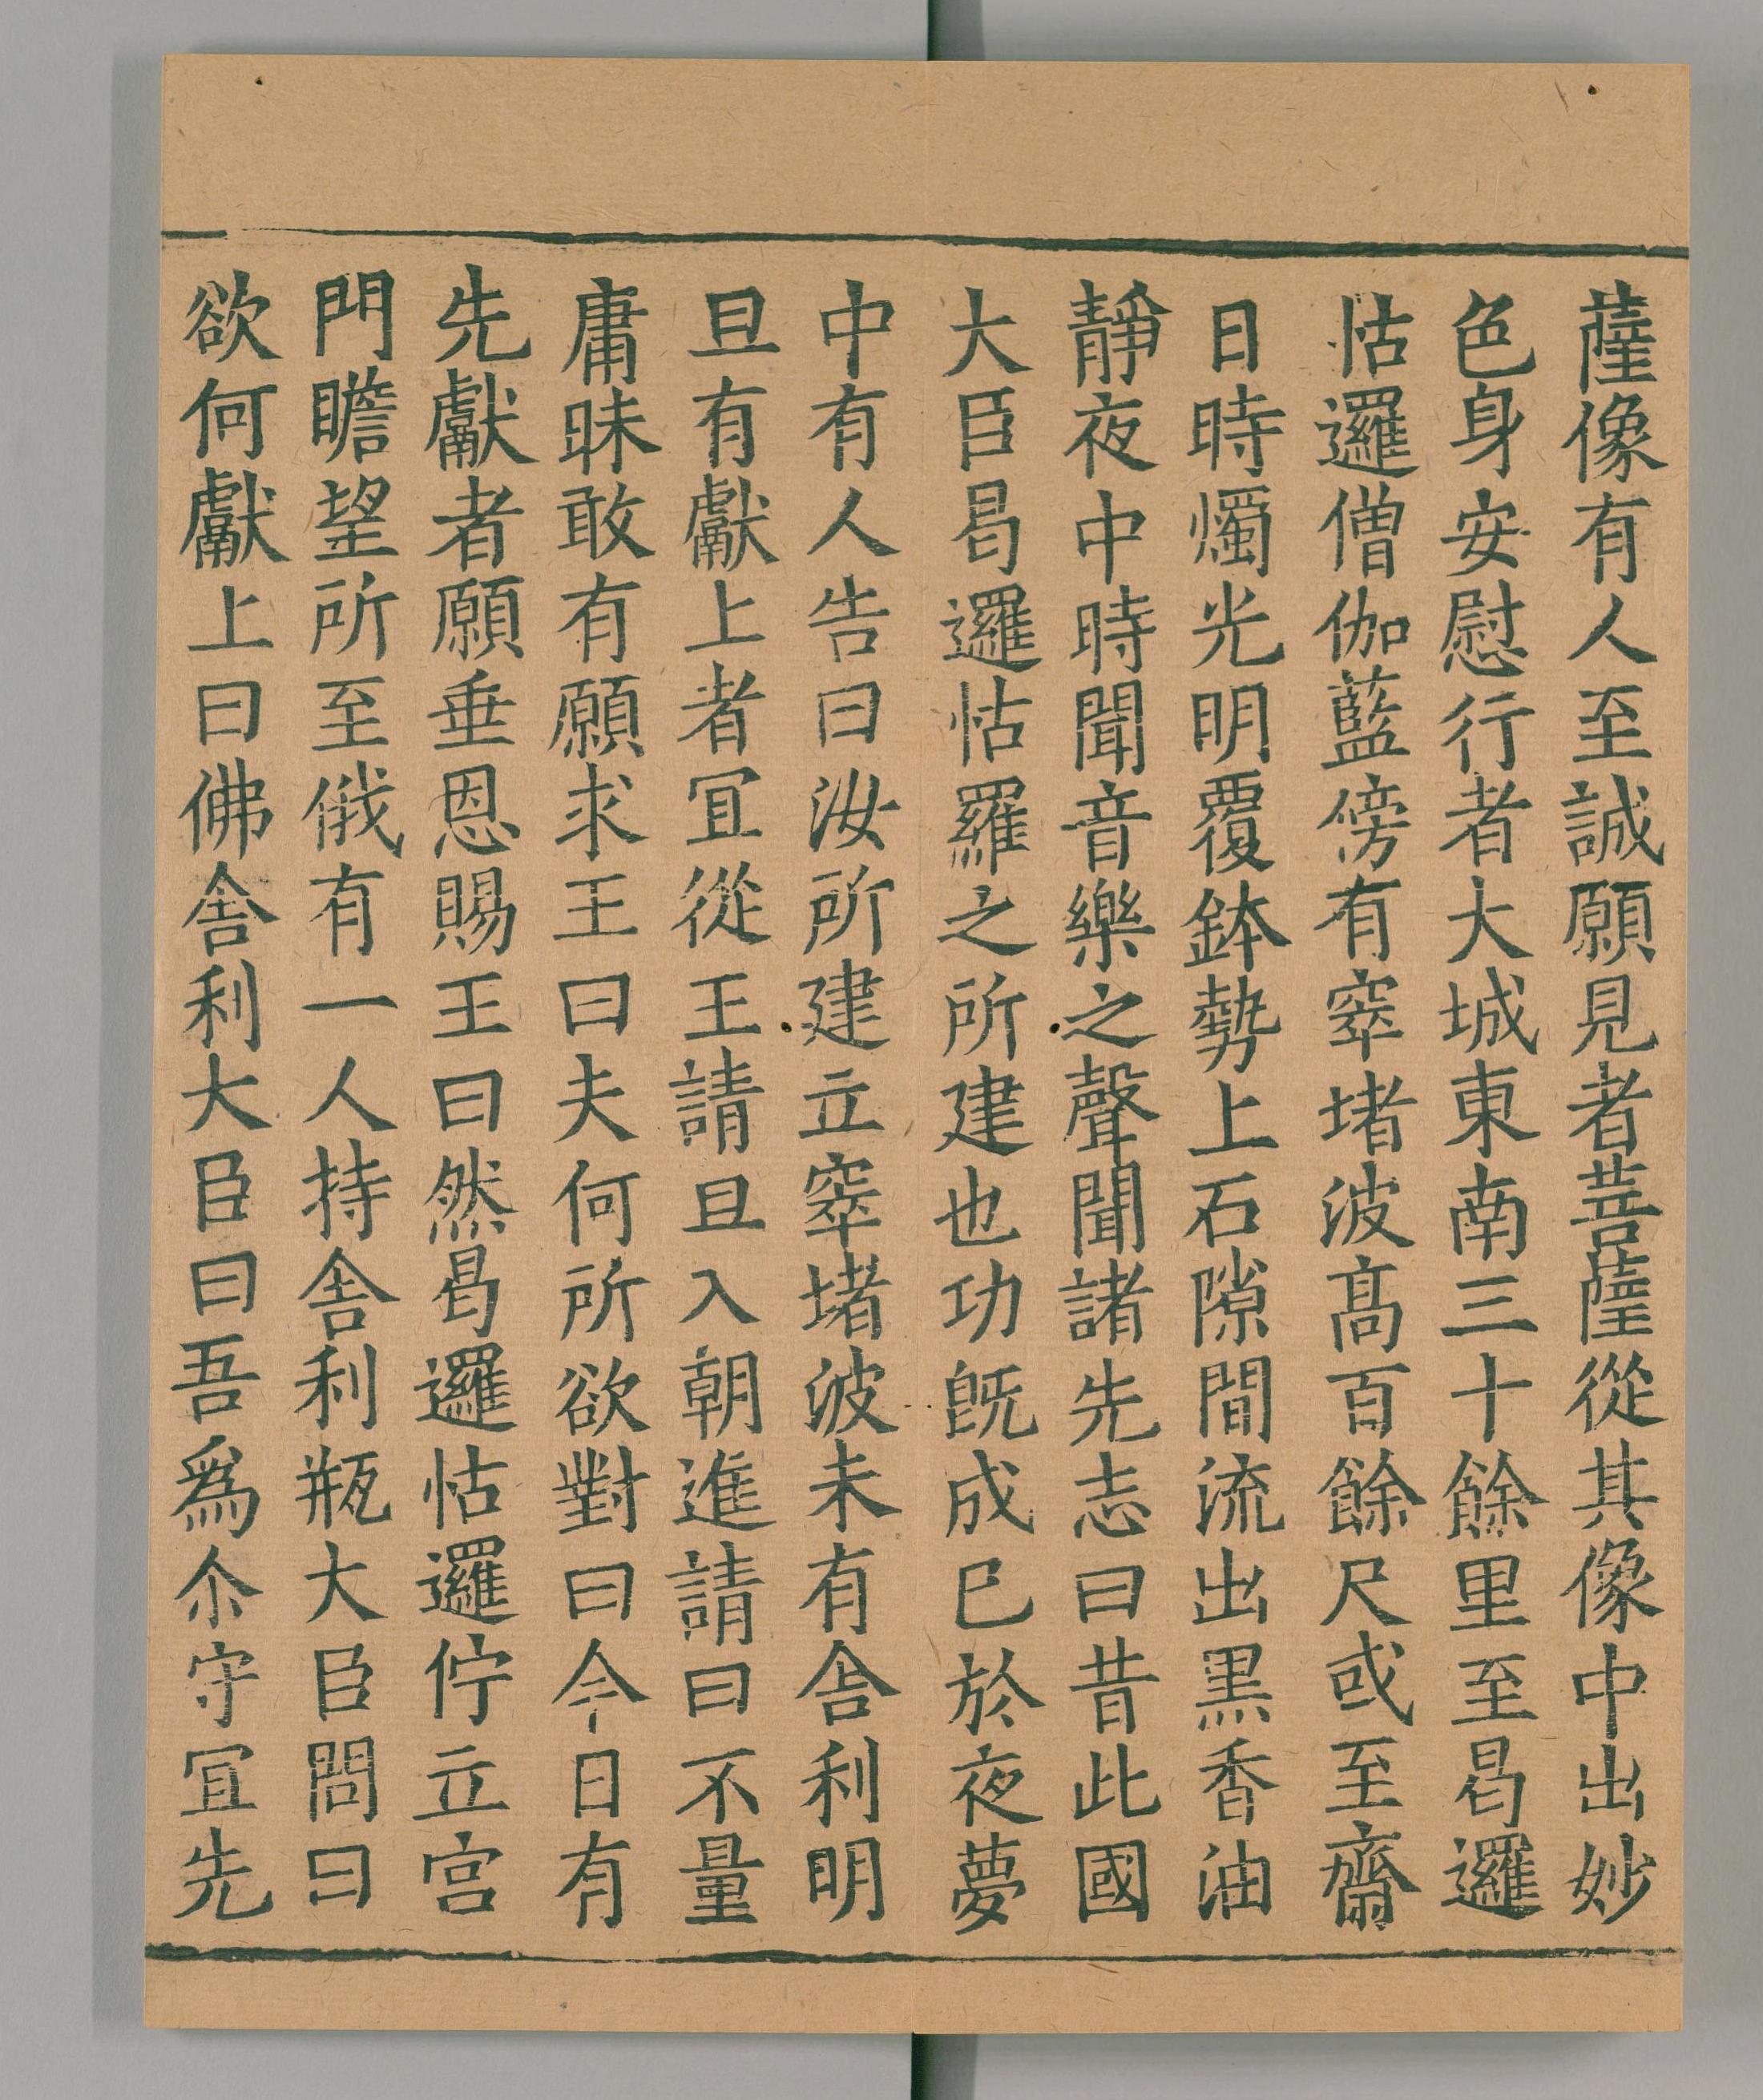 薩像有人至誠願見者菩薩從其像中出妙
色身安慰行者大城東南三十餘里至曷邏
怙邏僧伽藍傍有窣堵波高百餘尺或至齋
日時燭光明覆鉢勢上石隙間流出黒香油
靜夜中時聞音樂之聲聞諸先志曰昔此國
大臣曷邏怙羅之所建也功旣成已於夜夢
中有人告曰汝所建立窣堵波未有舍利明
旦有獻上者宜從王請旦入朝進請曰不量
庸昧敢有願求王曰夫何所欲對曰今日有
先獻者願垂恩賜王曰然曷邏怙邏佇立宮
門瞻望所至俄有一人持舍利瓶大臣問曰
欲何獻上曰佛舍利大臣曰吾爲尒守宜先